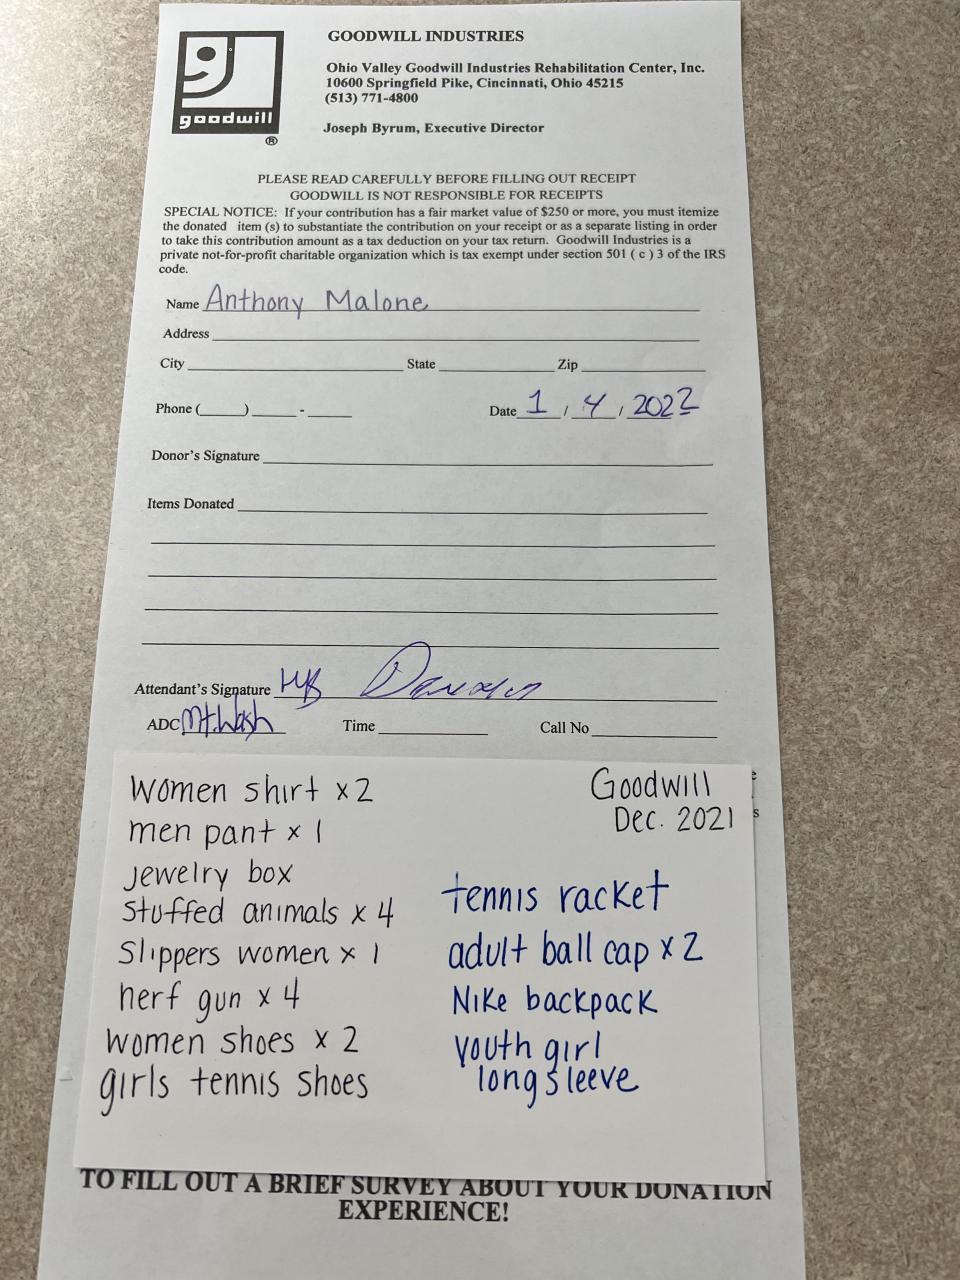 goodwill
®
GOODWILL INDUSTRIES
Ohio Valley Goodwill Industries Rehabilitation Center, Inc.
10600 Springfield Pike, Cincinnati, Ohio 45215
(513) 771-4800
Joseph Byrum, Executive Director
PLEASE READ CAREFULLY BEFORE FILLING OUT RECEIPT
GOODWILL IS NOT RESPONSIBLE FOR RECEIPTS
SPECIAL NOTICE: If your contribution has a fair market value of $250 or more, you must itemize
the donated item (s) to substantiate the contribution on your receipt or as a separate listing in order
to take this contribution amount as a tax deduction on your tax return. Goodwill Industries is a
private not-for-profit charitable organization which is tax exempt under section 501 ( c ) 3 of the IRS
code.
Name Anthony Malone
Address
City State Zip
Phone ( ) - Date 1 / 4 / 2022
Donor's Signature
Items Donated
Attendant's Signature
ADC Mt.Wash Time Call No
women shirt x 2
men pant x 1
jewelry box
stuffed animals x 4
slippers women x 1
nerf gun x 4
women shoes x 2
girls tennis shoes
Goodwill
Dec. 2021
tennis racket
adult ball cap x 2
Nike backpack
youth girl
longsleeve
TO FILL OUT A BRIEF SURVEY ABOUT YOUR DONATION
EXPERIENCE!